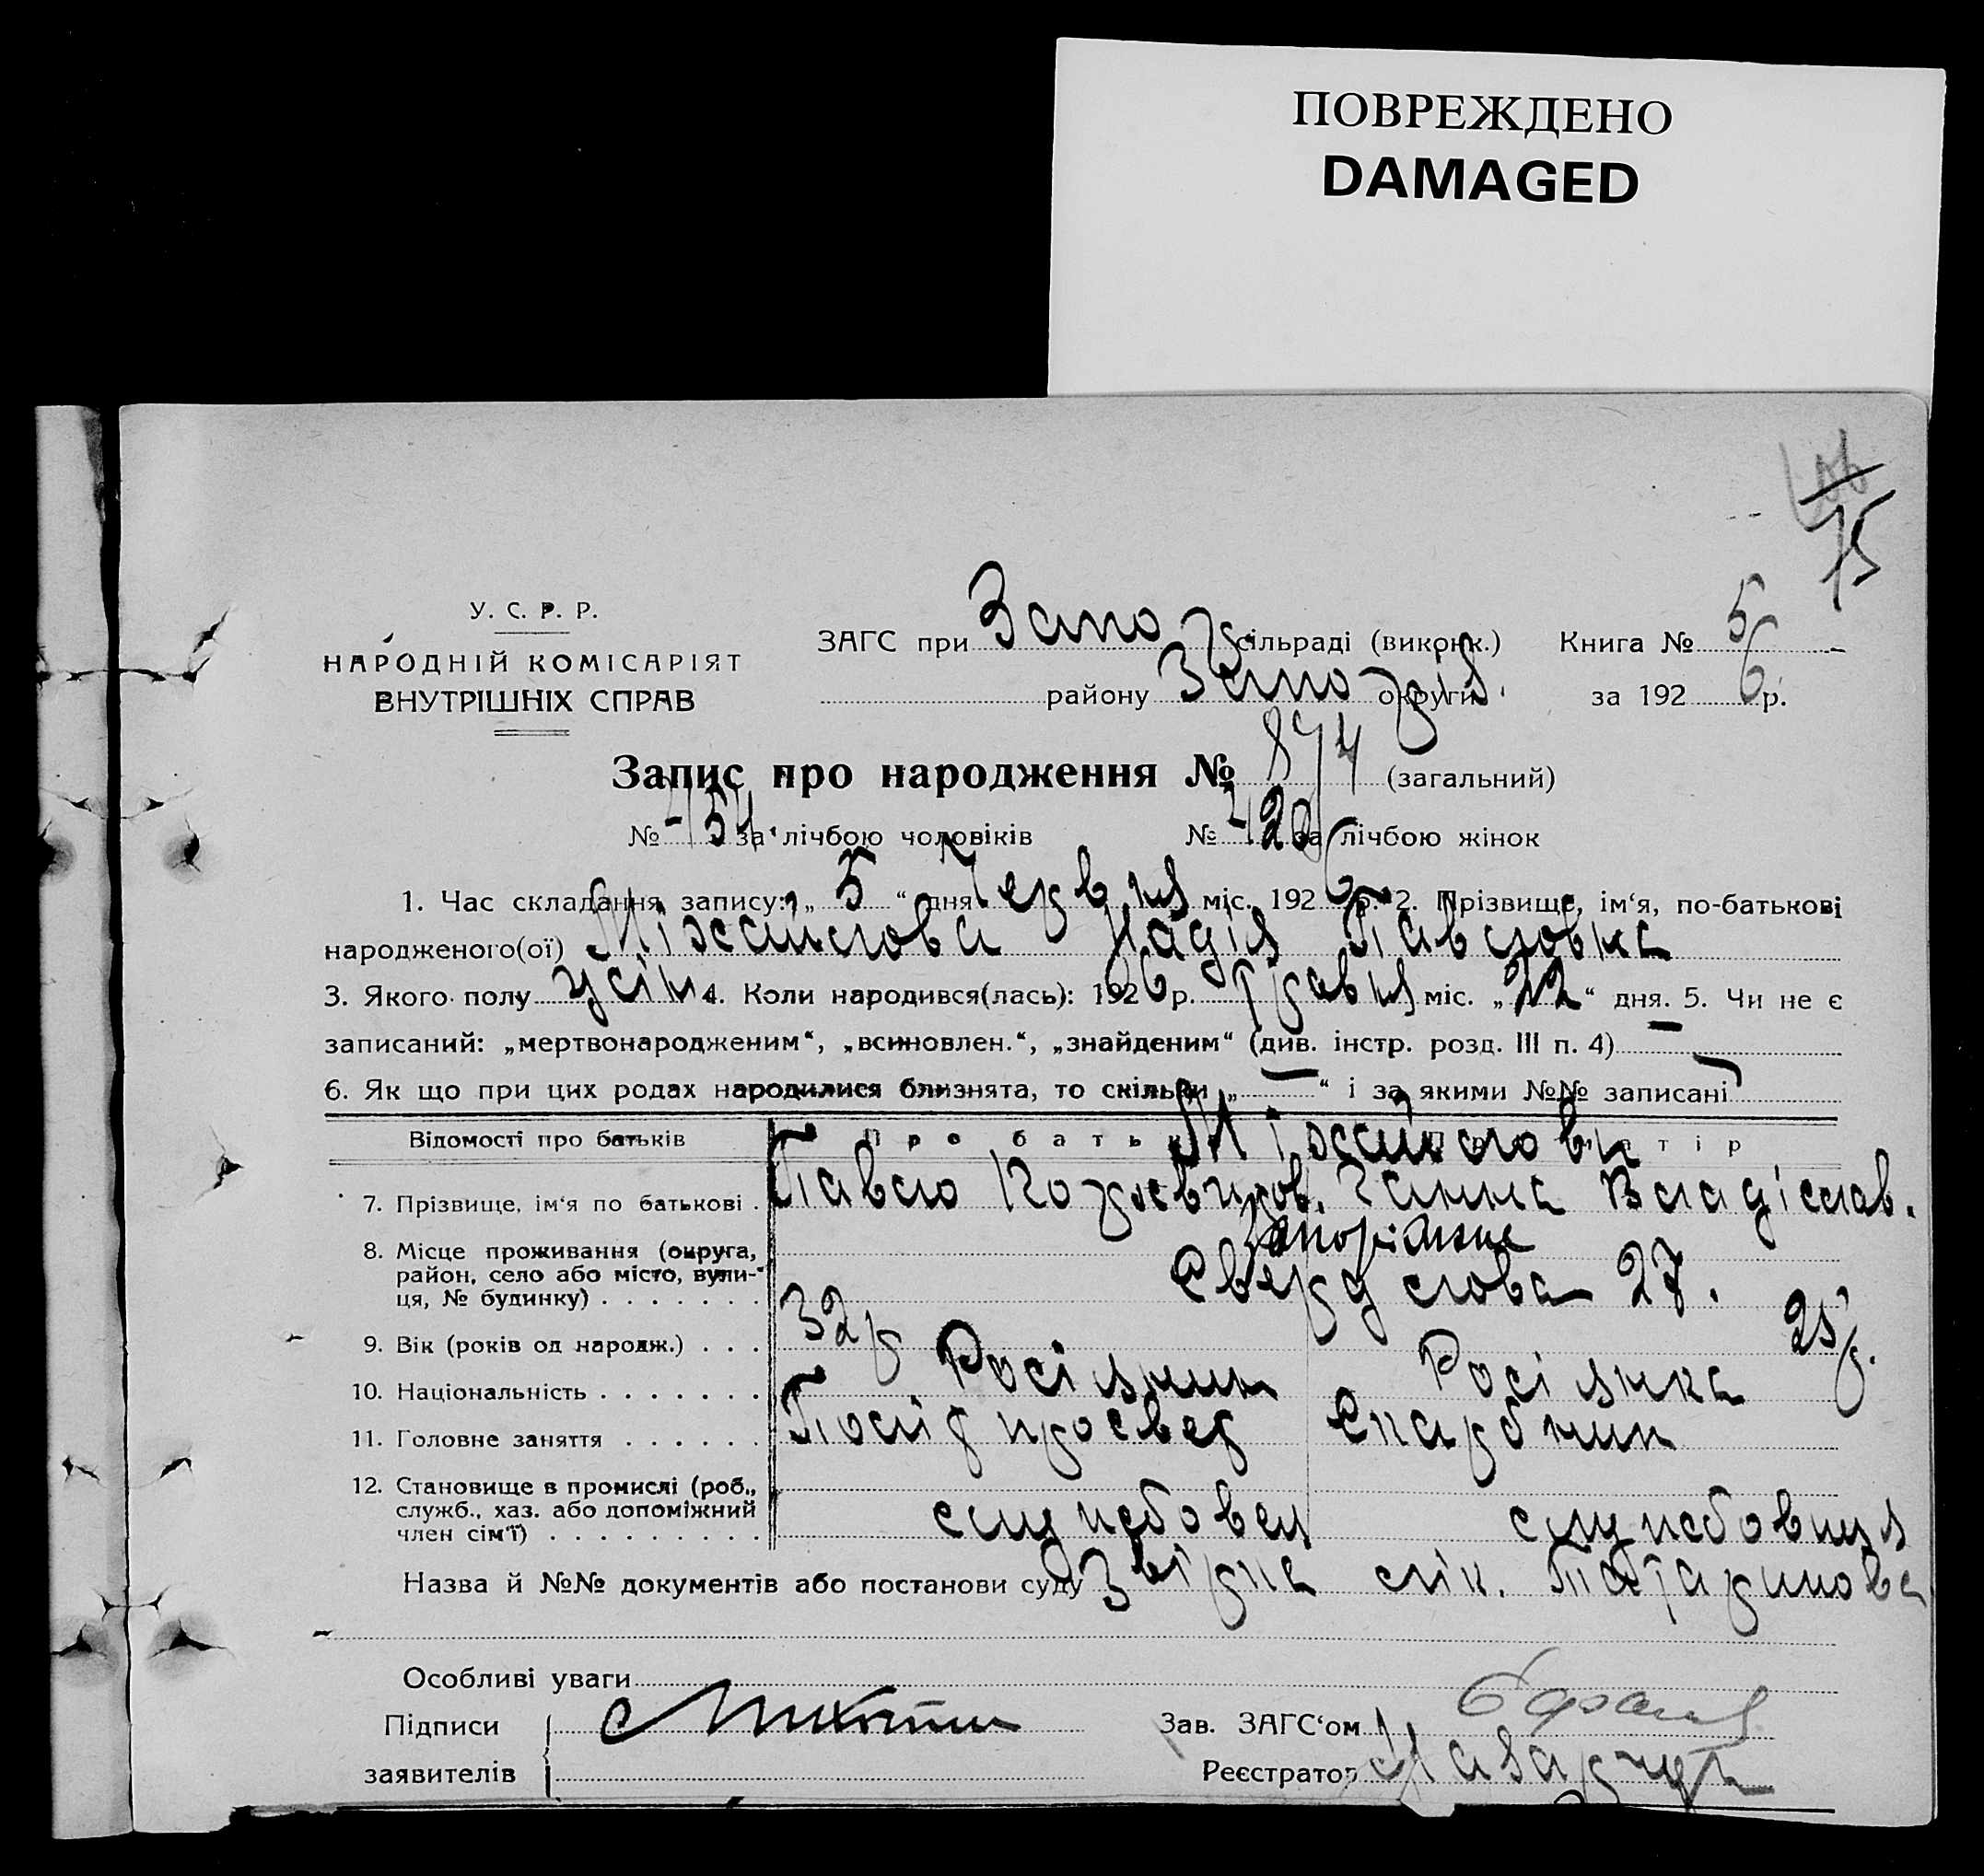 ПОВРЕЖДЕНО
DAMAGED
75
У. С. Р. Р.
НАРОДНІЙ КОМІСАРІЯТ
ВНУТРІШНІХ СПРАВ
ЗАГС при Запор сільраді (виконк.) Книга № 5
району Запоріз. округи за 192 6 р.
Запис про народження № 874 (загальний)
№ 454 за лічбою чоловіків № 420 за лічбою жінок
1. Час складання запису: „ 5 “ дня Червня міс. 192 6 р. 2. Прізвище, ім‘я, по-батькові
народженого(ої) Міхайлова Надія Павловна
3. Якого полу жін 4. Коли народився(лась): 192 6 р. Травня міс. „ 22 “ дня. 5. Чи не є
записаний: „мертвонародженим“, „всиновлен.“, „знайденим“ (див. інстр. розд. III п. 4) —
6. Як що при цих родах народилися близнята, то скільки „ — “ і за якими №№ записані
Відомості про батьків Про батька Про матір
Міхайлови
7. Прізвище, ім‘я по батькові . Павло Ганна Владіслав.
8. Місце проживання (округа,
район, село або місто, вули-
ця, № будинку) . . . . . . . Запоріжжя
Свердлова 27.
9. Вік (років од народж.) . . . 32 р 25 р.
10. Національність . . . . . . . Росіянин Росіянка
11. Головне заняття . . . . . . Скарбник
12. Становище в промислі (роб.,
служб., хаз. або допоміжний
член сім‘ї) . . . . . . . . . службовец службовиця
Назва й №№ документів або постанови суду лік. Татаринова
Особливі уваги
Підписи
заявителів
Зав. ЗАГС‘ом
Реєстратор